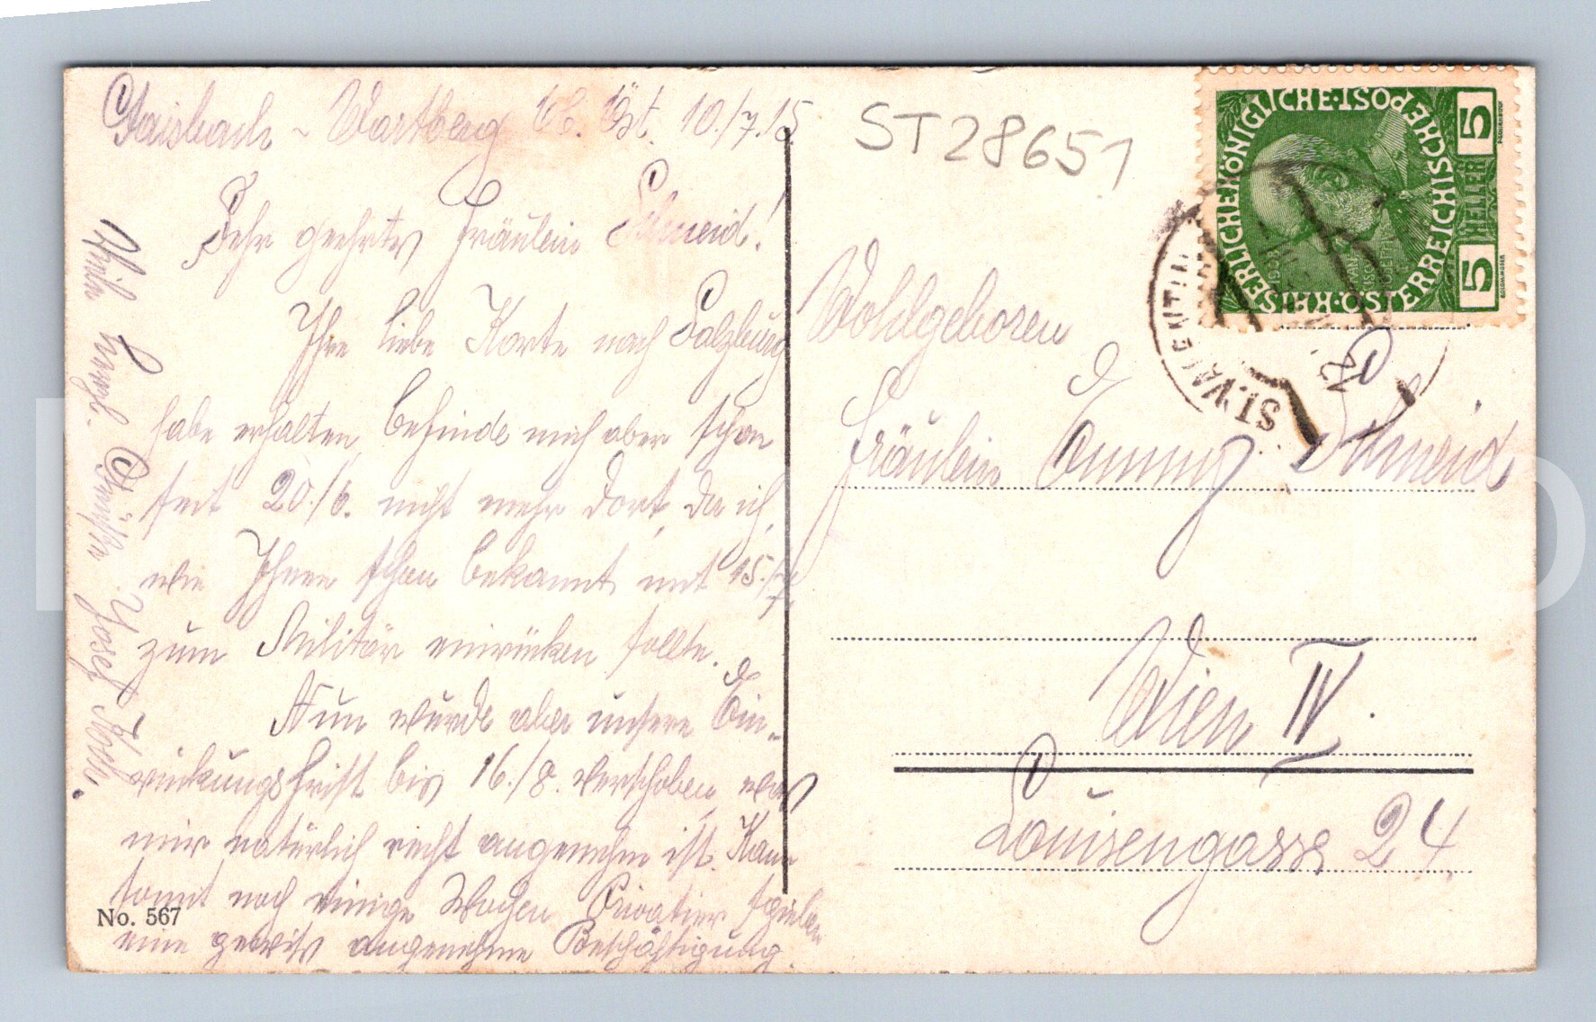 Gaisbach - Wartberg Ob. Öst. 10./7.15
Sehr geehrtes Fräulein Schmeid!
Ihre liebe Karte nach Salzburg
habe erhalten, befinde mich aber schon
seit 20./6. nicht mehr dort, da ich,
wie Ihnen schon bekannt mit 15./7.
zum Militär einrücken sollte.
Nun wurde aber unsere Ein-
rückungsfrist bis 16./8. verschoben, was
mir natürlich recht angenehm ist. Kann
somit noch einige Wochen Privatier spielen
eine gewiss angenehme Beschäftigung.
herzl. Grüße Josef
No. 567
ST28651
KAISERLICHE KÖNIGLICHE ÖSTERREICHISCHE POST
5 HELLER 5
ST. VALENTIN
Wohlgeboren
Fräulein Emmy Schmeid
Wien IV.
Louisengasse 24.